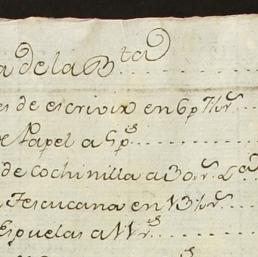 a de la B.ta
es de escrivir en 6 p 7 1/2 r.s
e Papel a 5 p.s
de cochinilla a 30 r.s L.a
Tescucana en 13 1/2 r.s
Espuelas a 11 r.s